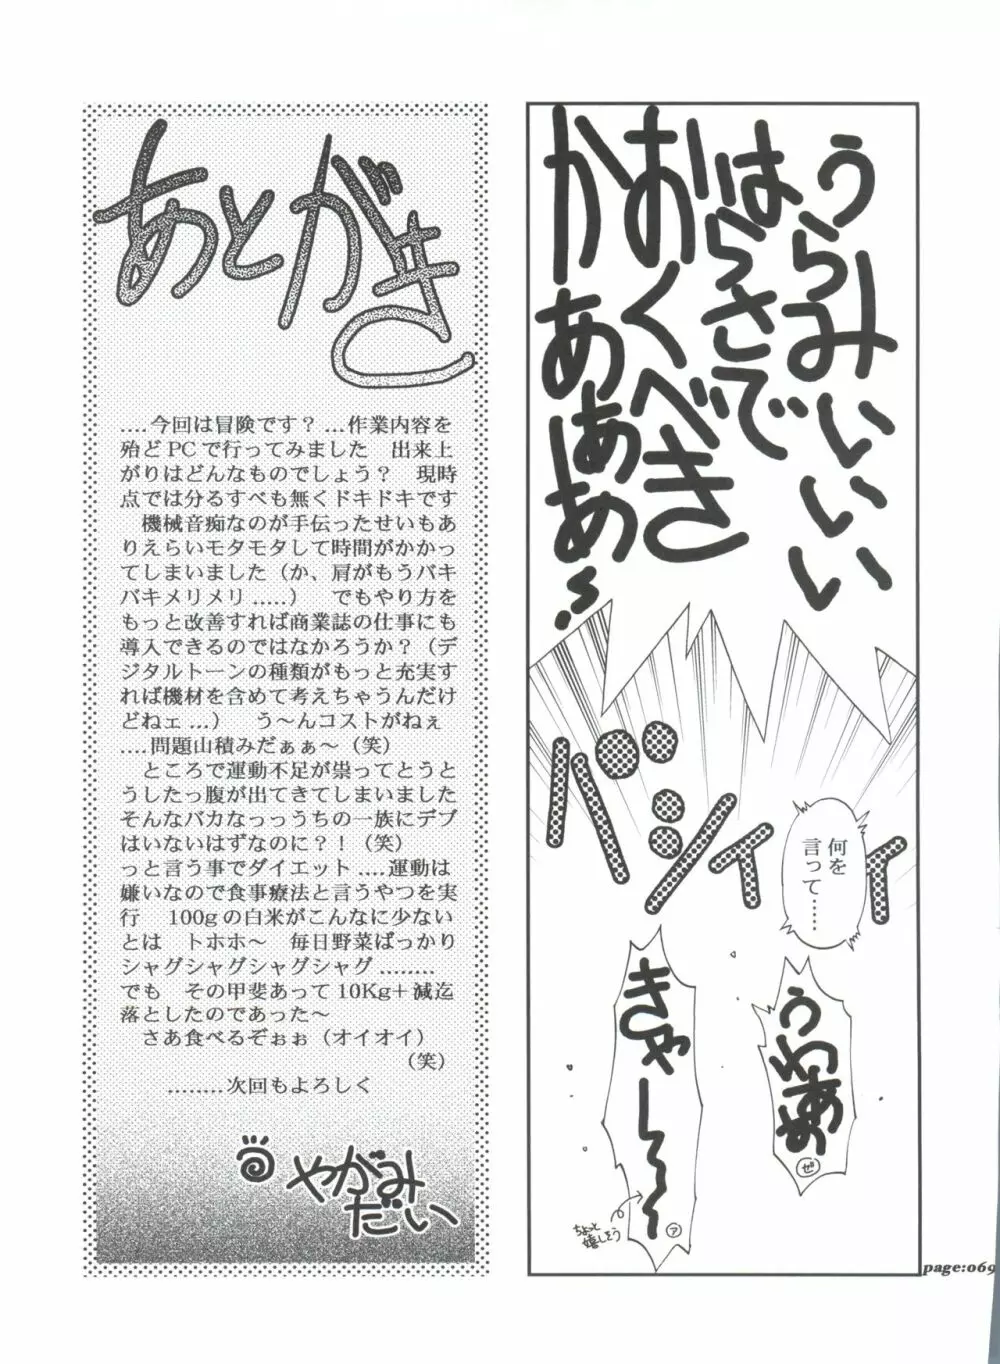 うらみいいい
はらさで
おくべき
かあぁあ!
バシィィィ
何を
言って……
うわあぁ
ゼ
きゃー〜〜〜
ア
ちょっと
嬉しそう
page:069
あとがき
.....今回は冒険です？ ...作業内容を
殆どPCで行ってみました　出来上
がりはどんなものでしょう？　現時
点では分るすべも無くドキドキです
　機械音痴なのが手伝ったせいもあ
りえらいモタモタして時間がかかっ
てしまいました（か、肩がもうバキ
バキメリメリ......）　でもやり方を
もっと改善すれば商業誌の仕事にも
導入できるのではなかろうか？（デ
ジタルトーンの種類がもっと充実す
れば機材を含めて考えちゃうんだけ
どねェ...）　う〜んコストがねぇ
.....問題山積みだぁぁ〜（笑）
　ところで運動不足が祟ってとうと
うしたっ腹が出てきてしまいました
そんなバカなっっうちの一族にデブ
はいないはずなのに？！（笑）
っと言う事でダイエット.....運動は
嫌いなので食事療法と言うやつを実
行　100gの白米がこんなに少ない
とは　トホホ〜　毎日野菜ばっかり
シャグシャグシャグシャグ........
でも　その甲斐あって10Kg＋減迄
落としたのであった〜
　さあ食べるぞぉぉ（オイオイ）
（笑）
........次回もよろしく
やがみ
だい